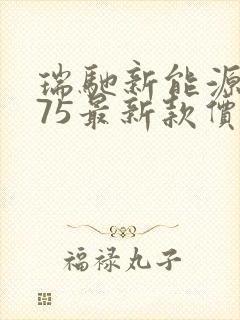 瑞馳新能源
75最新款價
福禄丸子